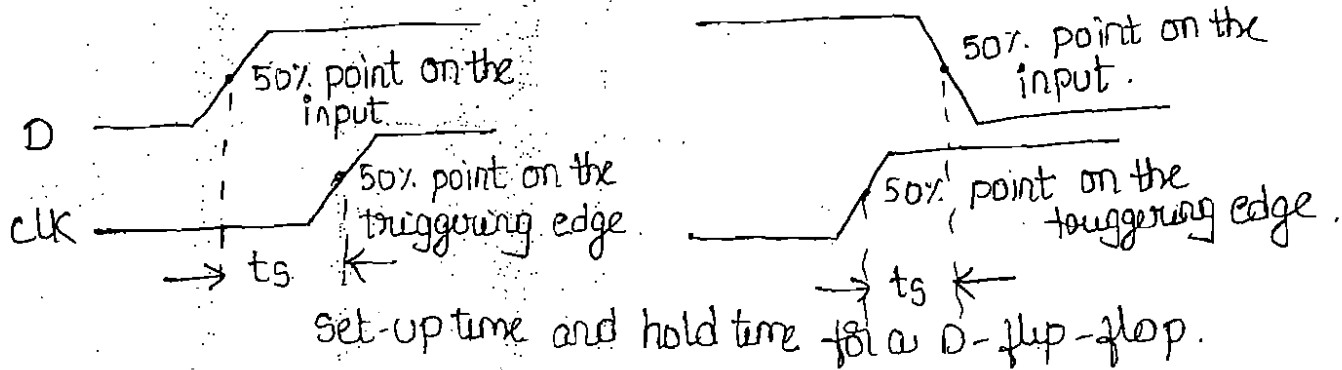 50% point on the
input.
D
50% point on the
triggering edge.
CLK
ts
50% point on the
input.
50% point on the
touggering edge.
ts
set-up time and hold time for a D-flip-flop.